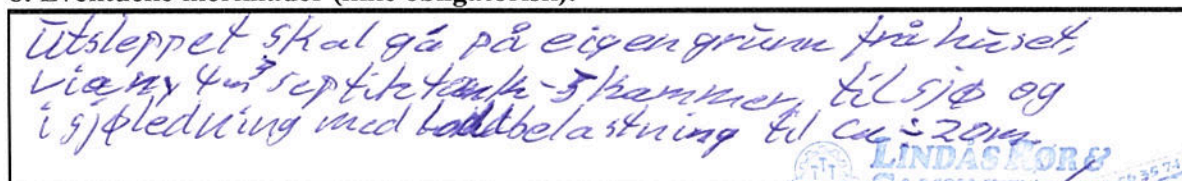 Utsleppet skal gå på eigen grunn frå huset,
via ny 4m³ septiktank-3 kammer, til sjø og
i sjøledning med loddbelastning til ca -20m
LINDÅS RØR &